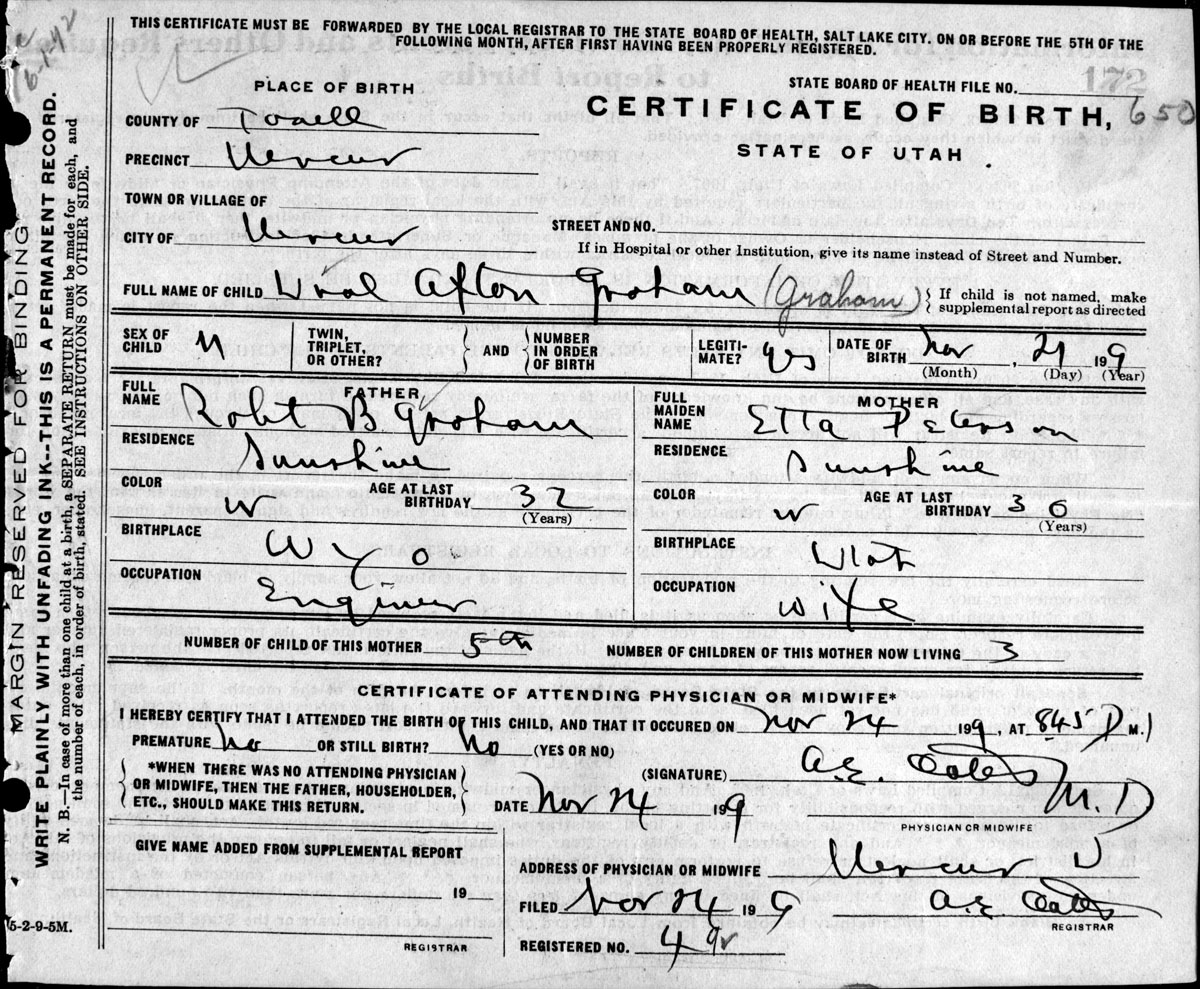 THIS CERTIFICATE MUST BE FORWARDED BY THE LOCAL REGISTRAR TO THE STATE BOARD OF HEALTH, SALT LAKE CITY, ON OR BEFORE THE 5TH OF THE
FOLLOWING MONTH, AFTER FIRST HAVING BEEN PROPERLY REGISTERED.
172
PLACE OF BIRTH
STATE BOARD OF HEALTH FILE NO.
COUNTY OF Tooele
CERTIFICATE OF BIRTH, 650
PRECINCT Mercur
STATE OF UTAH
TOWN OR VILLAGE OF
CITY OF Mercur
STREET AND NO.
If in Hospital or other Institution, give its name instead of Street and Number.
FULL NAME OF CHILD Afton Graham (Graham) { If child is not named, make
supplemental report as directed
SEX OF CHILD M TWIN, TRIPLET, OR OTHER? } AND { NUMBER IN ORDER OF BIRTH LEGITI-MATE? yes DATE OF BIRTH Nov , 199
(Month) (Day) (Year)
FATHER
FULL NAME Robt B Graham
RESIDENCE Sunshine
COLOR W AGE AT LAST BIRTHDAY 32
(Years)
BIRTHPLACE Wyo
OCCUPATION Engineer
MOTHER
FULL MAIDEN NAME Etta Peterson
RESIDENCE Sunshine
COLOR W AGE AT LAST BIRTHDAY 30
(Years)
BIRTHPLACE Utah
OCCUPATION Wife
NUMBER OF CHILD OF THIS MOTHER 5th NUMBER OF CHILDREN OF THIS MOTHER NOW LIVING 3
CERTIFICATE OF ATTENDING PHYSICIAN OR MIDWIFE*
I HEREBY CERTIFY THAT I ATTENDED THE BIRTH OF THIS CHILD, AND THAT IT OCCURED ON Nov 24 199, AT 845 P M.
PREMATURE No OR STILL BIRTH? No (YES OR NO)
(SIGNATURE) A.E. M.D
{ *WHEN THERE WAS NO ATTENDING PHYSICIAN
OR MIDWIFE, THEN THE FATHER, HOUSEHOLDER,
ETC., SHOULD MAKE THIS RETURN. }
DATE Nov 24 199
PHYSICIAN OR MIDWIFE
GIVE NAME ADDED FROM SUPPLEMENTAL REPORT
19
REGISTRAR
ADDRESS OF PHYSICIAN OR MIDWIFE Mercur U
FILED Nov 24 199 A.E.
REGISTRAR
REGISTERED NO. 49
MARGIN RESERVED FOR BINDING
WRITE PLAINLY WITH UNFADING INK--THIS IS A PERMANENT RECORD.
N. B.—In case of more than one child at a birth, a SEPARATE RETURN must be made for each, and
the number of each, in order of birth, stated. SEE INSTRUCTIONS ON OTHER SIDE.
5-2-9-5M.